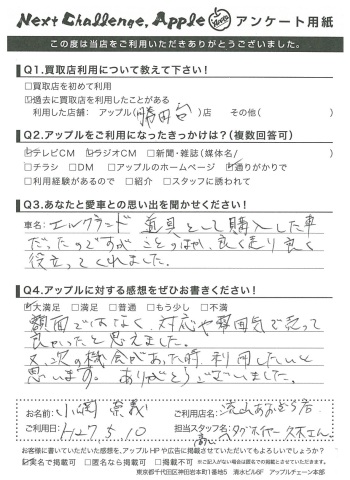 Next Challenge, Apple アンケート用紙
この度は当店をご利用いただきありがとうございました。
Q1.買取店利用について教えて下さい！
□買取店を初めて利用
☑過去に買取店を利用したことがある
利用した店舗： アップル(勝田台)店 その他( )
Q2.アップルをご利用になったきっかけは？(複数回答可)
☑テレビCM ☑ラジオCM □新聞・雑誌(媒体名/ ) ☑通りがかりで
□チラシ □DM □アップルのホームページ
□利用経験があるので □紹介 □スタッフに誘われて
Q3.あなたと愛車との思い出を聞かせください！
車名： エルグランド 道具として購入した車
だったのですが ことのほか、良く走り良く
役立ってくれました。
Q4.アップルに対する感想をぜひお書きください！
☑大満足 □満足 □普通 □もう少し □不満
額面ではなく、対応や雰囲気で売って
良かったと思えました。
又、次の機会があった時、利用したいと
思います。 ありがとうございました。
お名前： 小 ご利用店名： 流山おおたかの森店
ご利用日： H27.5.10 担当スタッフ名：
お客様に書いていただいた感想を、アップルHPや広告に掲載させていただいてもよろしいでしょうか？
☑実名で掲載可 □匿名なら掲載可 □掲載不可 ※ご記入がない場合は匿名での掲載とさせていただきます。
東京都千代田区神田岩本町1番地5 清水ビル6F アップルチェーン本部